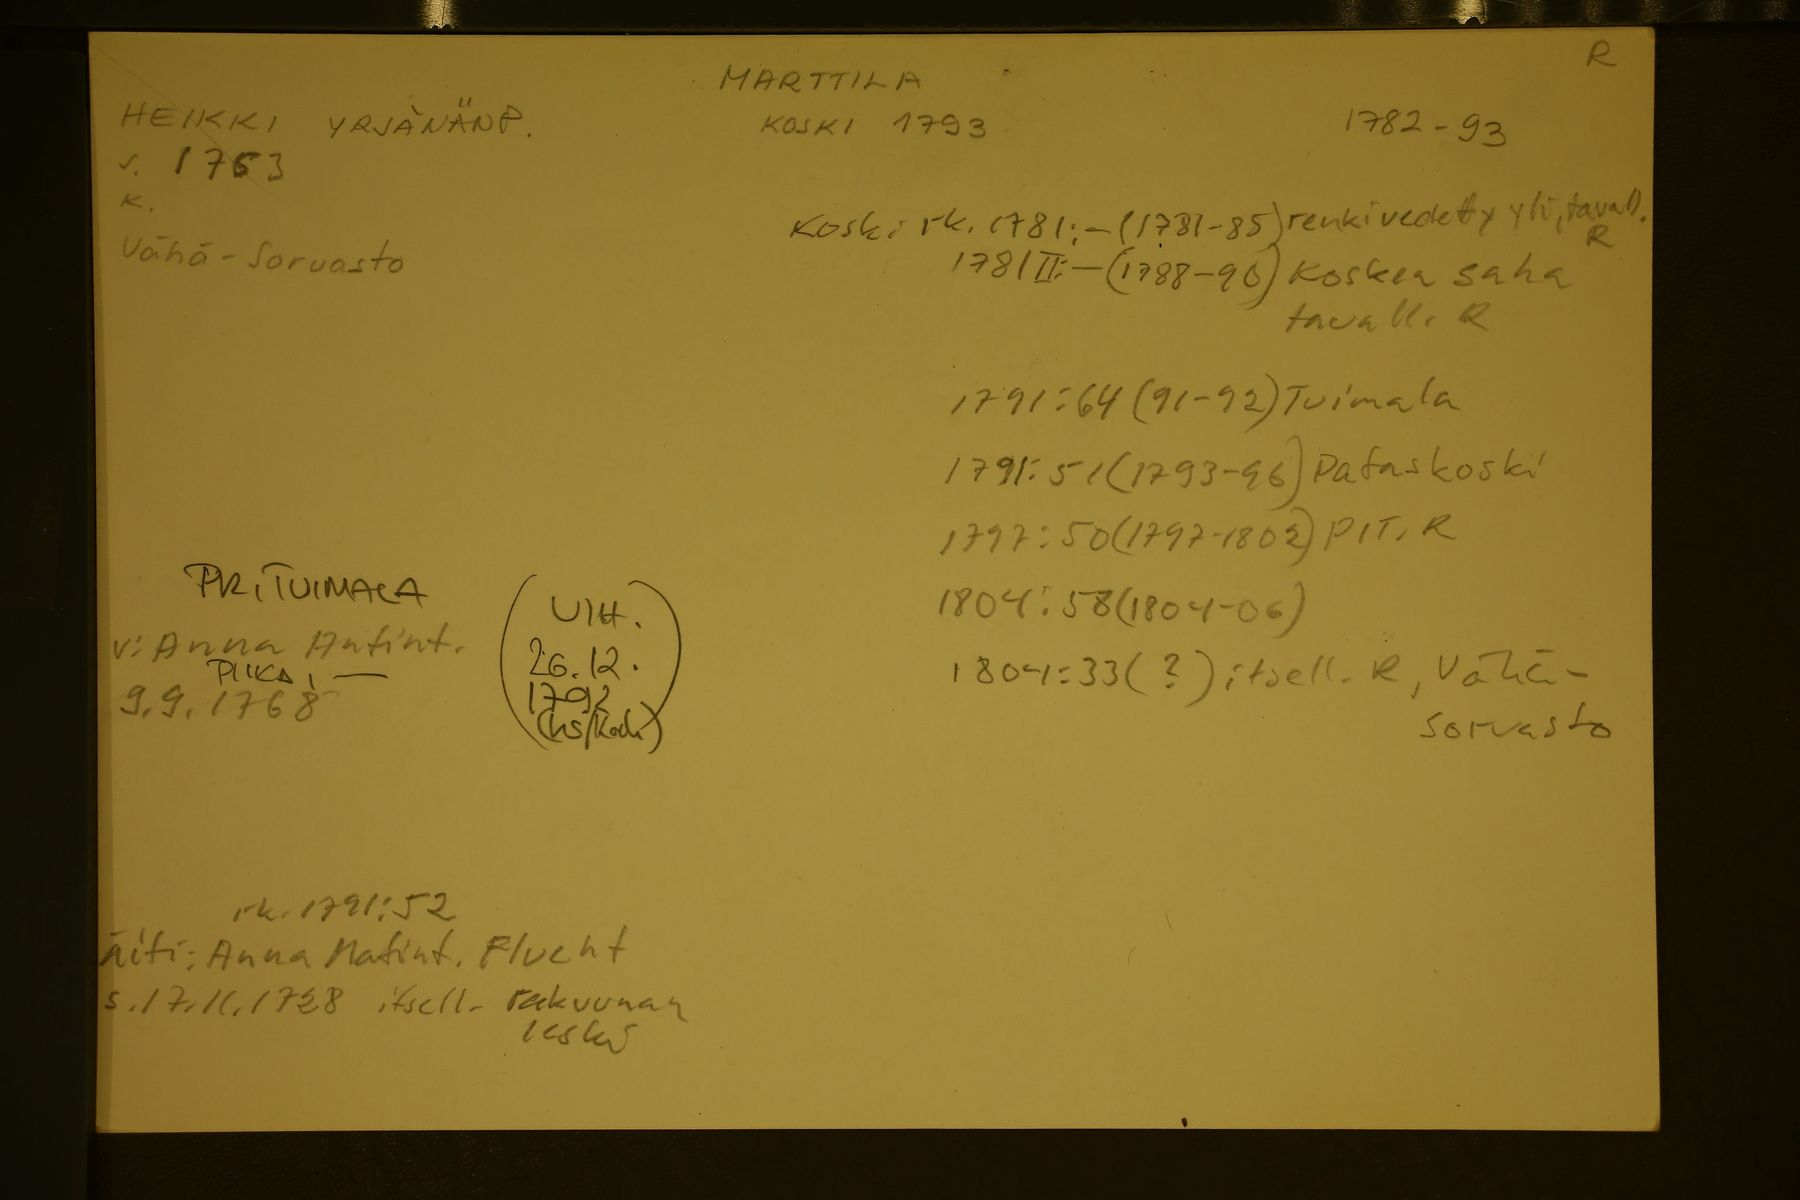 R
MARTTILA
HEIKKI YRJÄNÄNP.
KOSKI 1793
1782-93
s. 1763
k.
Vähä-Sorvasto
Koski rk. 1781:-(1781-85) renki vedetty yli, tavall. R
1781 II:-(1788-90) Kosken saha
tavall. R
1791:64 (91-92) Tuimala
1791:51 (1793-96) Pataskoski
1797:50 (1797-1802) PIT. R
1804:58 (1804-06)
1804:33 (?) itsell. R, Vähä-
Sorvasto
PR, TUIMALA
v: Anna Antint.
PIIKA, —
9.9.1768
(VIH.
26.12.
1792
(hs/Koski))
rk. 1791:52
Äiti: Anna Matint. Flucht
s. 17.11.1728 itsell. rakuunan
leski